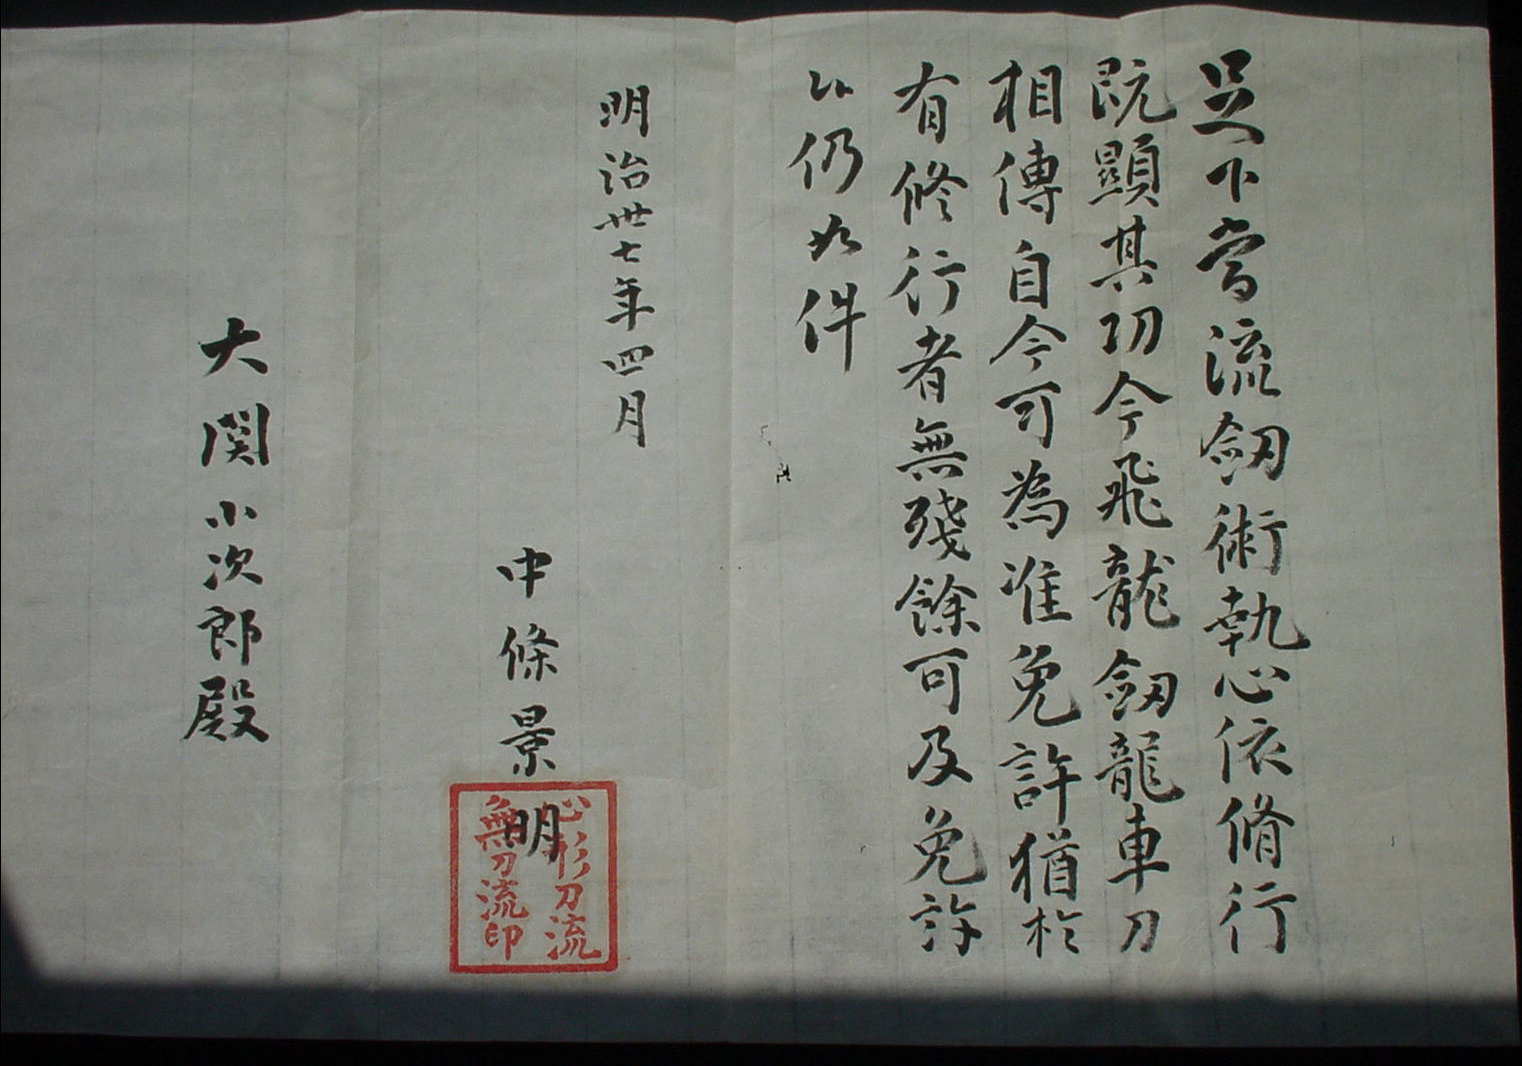 足下當流劔術執心依脩行
既顕其功今飛龍劔龍車刀
相傳自今可為准免許猶於
有修行者無殘餘可及免許
候仍如件
明治丗七年四月
中條景明
心形刀流
無刀流印
大関小次郎殿